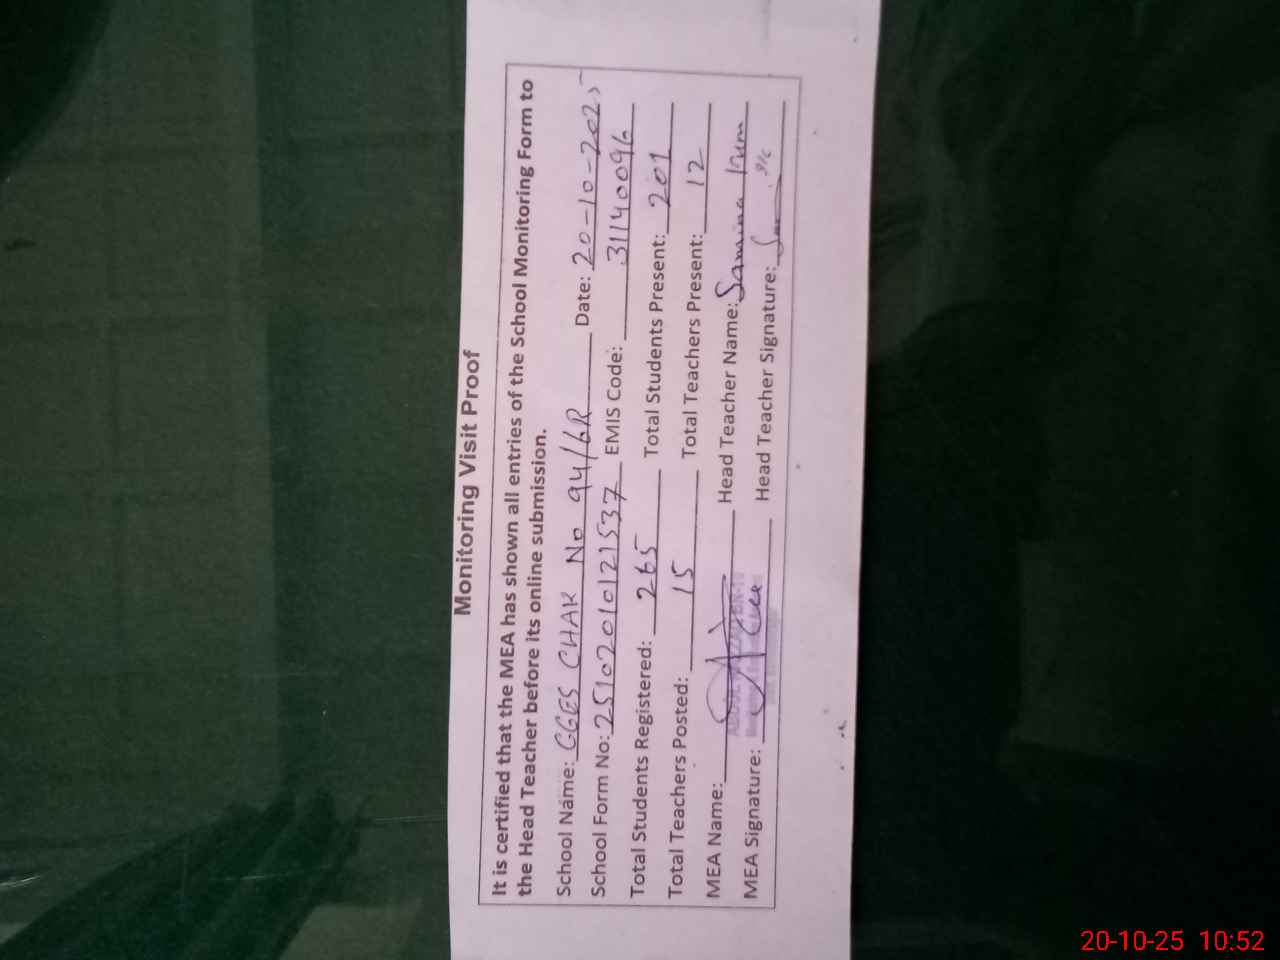 Monitoring Visit Proof
It is certified that the MEA has shown all entries of the School Monitoring Form to
the Head Teacher before its online submission.
School Name: GGES CHAK No 94/6R Date: 20-10-2025
School Form No: 25102010121537 EMIS Code: 31140096
Total Students Registered: 265 Total Students Present: 201
Total Teachers Posted: 15 Total Teachers Present: 12
MEA Name: Head Teacher Name: Samina
MEA Signature: Head Teacher Signature:
20-10-25 10:52